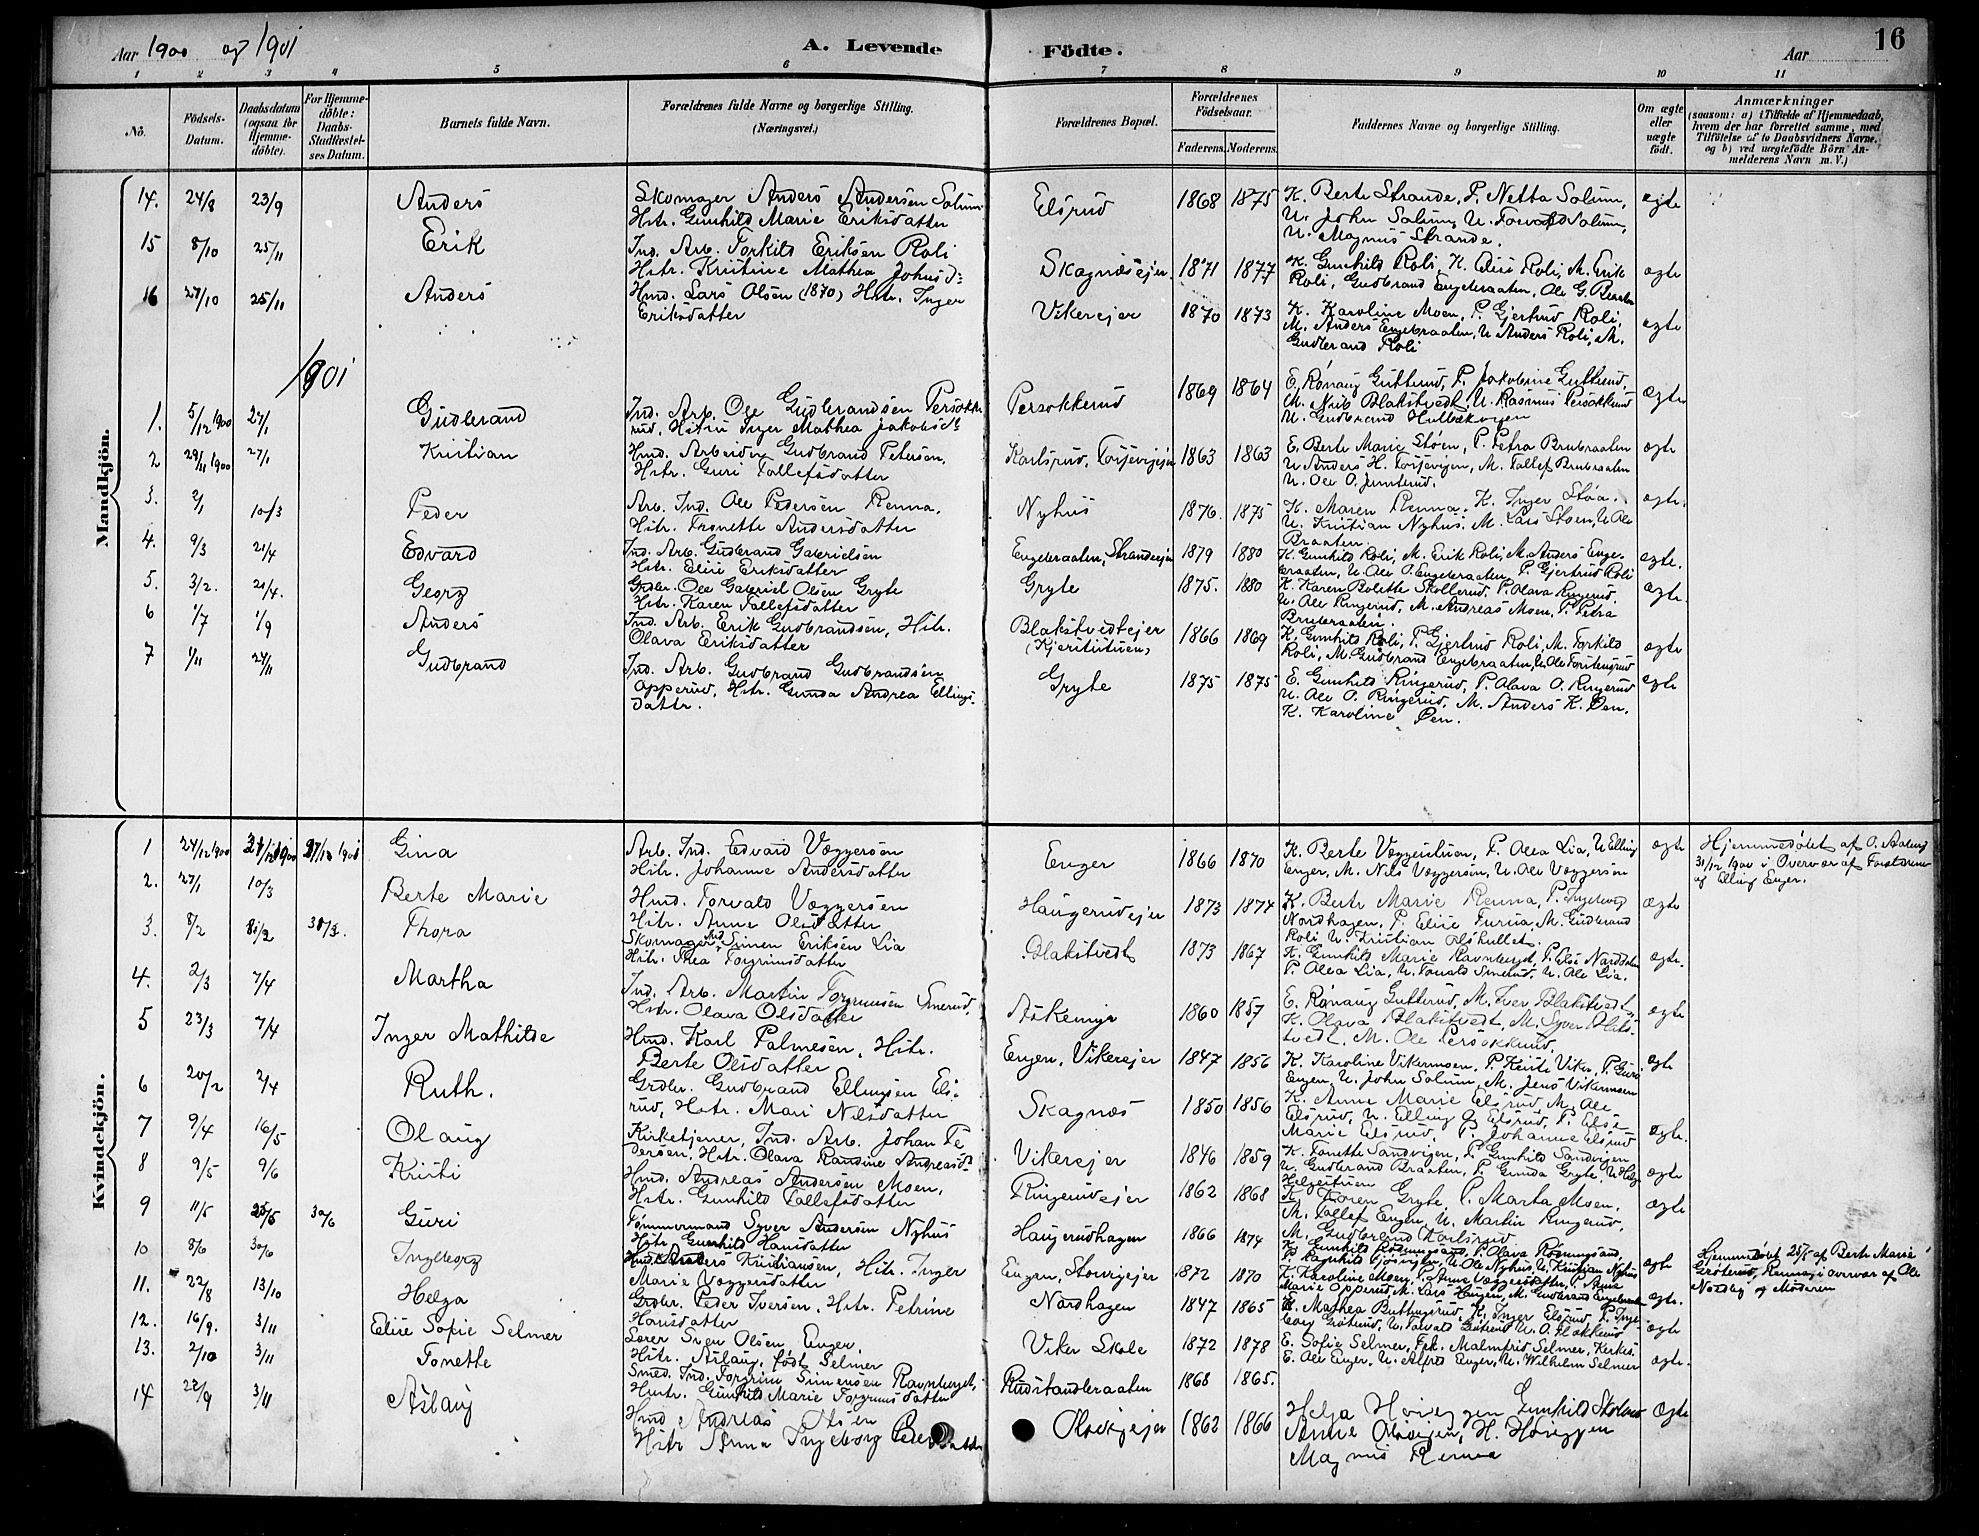 Aar 1900 og 1901
A. Levende Födte.
Aar
16
1 2 3 4 5 6 7 8 9 10 11
No.
Födsels-Datum.
Daabsdatum (ogsaa for Hjemme-döbte).
For Hjemme-döbte: Daabs-Stadfæstel-ses Datum.
Barnets fulde Navn.
Forældrenes fulde Navne og borgerlige Stilling.
(Næringsvei.)
Forældrenes Bopæl.
Forældrenes Födselsaar.
Faderens. Moderens.
Faddernes Navne og borgerlige Stilling.
Om ægte eller uægte födt.
Anmærkninger
(saasom: a) i Tilfælde af Hjemmedaab,
hvem der har forrettet samme, med
Tilföielse af to Daabsvidners Navne.
og b) ved uægtefödte Börn An-
melderens Navn m. V.)
Mandkjön.
14. 24/8 23/9 Anders
Skomager Anders Andersen Solum
Hstr. Gunhild Marie Eriksdatter
Elsrud 1868 1875
K. Berte Strande, P. Netta Solum,
U. John Solum, U. Torvald Solum,
U. Magnus Strande.
egte
15 8/10 25/11 Erik
Ind. Arb. Torkild Eriksen Roli
Hstr. Kristine Mathea Johnsd:
Skagnæsejer. 1871 1877
K. Gunhild Roli, K. Elise Roli, M. Erik
Roli, Gudbrand Engebraaten, Ole G.
egte
16 27/10 25/11 Anders
Hmd. Lars Olsen (1870) Hstr. Inger
Eriksdatter
Vikerejer 1870 1873
K. Karoline Moen, P. Gjertrud Roli,
M. Anders Engebraaten, U Anders Roli, M.
Gudbrand Roli
egte
1901
1. 5/12 1900 27/1 Gudbrand
Ind. Arb. Ole Gudbrandsen Persokke
rud, Hstru Inger Mathea Jakobsd:
Persokkerud 1869 1864
E. Rönaug Gutterud, P. Jakobine Gutterud,
M. Blakstvedt, U. Rasmus Persokkerud
U. Gudbrand
Ægte
2 29/11 1900 27/1 Kristian
Hmd. Arbeider Gudbrand Petersen,
Hstr. Guri Tollefsdatter
Karlsrud, 1863 1863
E. Berte Marie Støen, P. Petra Brubraaten
U Anders H. M. Tollef Brubraaten
U. Ole O.
egte
3. 2/1 10/3 Peder
Arb. Ind. Ole Pedersen Renna,
Hstr. Tronette Andersdatter
Nyhus 1876. 1875
K. Maren Renna, K. Inger Støa.
U. Kristian Nyhus. M. Lars Støen, U Ole
Braaten.
egte.
4. 9/3 21/4 Edvard
Ind. Arb. Gudbrand Gabrielsen
Hstr. Elise Eriksdatter
Engebraaten, Strandeejer 1879 1880
K. Gunhild Roli, M. Erik Roli, M. Anders Enge-
braaten, U Ole O. Engebraaten, P. Gjertrud Roli
egte.
5. 3/2. 21/4. Georg
Grdbr. Ole Gabriel Olsen Gryte
Hstr. Karen Tollefsdatter
Gryte 1875. 1880
K Karen Bolette Skollerud, P. Olava Ringerud,
U. Ole Ringerud, M. Andreas Moen, P. Petra
Brubraaten.
egte.
6 1/7 1/9 Anders
Ind. Arb. Erik Gudbrandsen, Hstr.
Olava Eriksdatter
Blakstvedtejer
1866 1869
K. Gunhild Roli, P. Gjertrud Roli, M. Torkild
Roli, M. Gudbrand Engebraaten,
egte
7 1/11 24/11 Gudbrand
Ind. Arb. Gudbrand Gudbrandsen
Opperud, Hstr. Gunda Andrea Ellings-
datter.
Gryte 1875 1875
E. Gunhild Ringerud, P. Olava O. Ringerud
U. Ole O. Ringerud, M. Anders K. Øen.
K. Karoline Øen.
egte
Kvindekjön.
1 24/12 1900 31/12 1900 27/12 1901 Gina
Arb. Ind. Edvard Væggersen
Hstr. Johanne Andersdatter
Enger 1866 1870
K. Berte P. Olea Lia, U Elling
Enger, M. Nils Væggersen, U. Ole Væggersen
egte
Hjemmedøbt af O.
31/12 1900 i Overvær af
og Elling Enger.
2. 27/1 10/3 Berte Marie
Hmd. Torvald Væggersen
Hstr. Anne Olsdatter
Haugerudejer 1873 1874
K. Berte Marie Renna, P. Ingeborg
Nordhagen, P. Elise M. Gudbrand
Roli U. Kristian
ægte
3. 8/2 Thora
Skomager Simen Eriksen Lia
Hstr. Thea Torgrimsdatter
Blakstvedt 1873 1867
K. Gunhild Marie Ravnberget, P. Else
P. Olea Lia, U. Torvald U. Ole Lia.
egte.
4. 2/3 7/4 Martha
Ind. Arb. Martin Torgrimsen Smerud,
Hstr. Olava Olsdatter
Askemyr 1860 1857
E. Rönaug Gutterud, M. Iver Blakstvedt,
K. Olava Blakstvedt, M. Syver Blak-
stvedt, M. Ole Persokkerud.
egte
5 23/3 7/4 Inger Mathilde
Hmd. Karl Palmesen, Hstr.
Berte Olsdatter
Engen, Vikerejer 1847 1856
K. Karoline Vikermoen, P. Kristi Viker, P. Guri
Engen, U. John Solum, M. Jens Vikermoen
egte
6 20/2 2/4 Ruth.
Grdbr. Gudbrand Ellingsen Els-
rud, Hstr. Mari Nilsdatter
Skagnæs 1850 1856
K. Anne Marie Elsrud, M. Ole
Elsrud, U. Elling G. Elsrud, P. Else
Marie Elsrud, P. Johanne Elsrud
egte.
7 9/4 16/5 Olaug
Kirketjener, Ind. Arb. Johan Pe
dersen, Hstr. Olava Randine Andreasd:
Vikerejer 1846 1859
K. Tonette Sandvigen, P. Gunhild Sandvigen
U. Gudbrand Braaten, P. Gunda Gryte, U Helge
Helgestuen
egte
8 9/5 9/6 Kristi
Hmd. Andreas Andersen Moen,
Hstr. Gunhild Tollefsdatter
Ringerudejer 1862 1868
K. Karen Gryte, P. Marta Moen,
M. Tollef Engen, U. Martin Ringerud,
M. Gudbrand Karlsrud.
ægte
9 11/5 30/6 Guri
Tømmermand Syver Andersen Nyhus
Hstr. Gunhild Hansdatter
Haugerudhagen 1866 1874
K. Gunhild P. Olava
U. Ole Nyhus, U. Kristian Nyhus
egte
10 8/6 30/6 Ingeborg
Hmd. Anders Kristiansen, Hstr. Inger
Marie Væggersdatter
Engen, 1872 1870
K. Karoline Moen, P. Anne P. Anne
Marie Opperud, M. Lars Haugen, M. Gudbrand Engebraaten
egte.
Hjemmedøbt af Berte Marie
Grøterud, Renna, i overvær af Ole
og Moderen
11. 22/8 13/10 Helga
Grdbr. Peder Iversen, Hstr. Petrine
Hansdatter
Nordhagen 1847 1865
K. Mathea Buttingsrud, K. Inger Elsrud, P. Inge-
borg Grøterud, U. Torvald Grøterud U. O.
ægte
12. 16/9. 3/11 Elise Sofie Selmer
Lærer Sven Olsen Enger,
Hstr. Aslaug, født Selmer
Viker Skole 1872 1878
E. Sofie Selmer, Frk. Malmfrid Selmer,
E. Ole Enger, U. Alfred Enger, U. Wilhelm Selmer
egte.
13. 2/10 3/11 Tonette
Smed, Ind. Torgrim Simensen Ravnberget,
Hustr. Gunhild Marie Torgrimsdatter
Rudstandbraaten 1868 1865.
14 22/9 3/11 Aslaug
Hmd Andreas Olsen
Hstr Anna Ingeborg Pedersdatter
Olsvigejer 1862 1866
Helga Gunhild
Anne Olsvigen, H.
Magnus Renna
Ægte